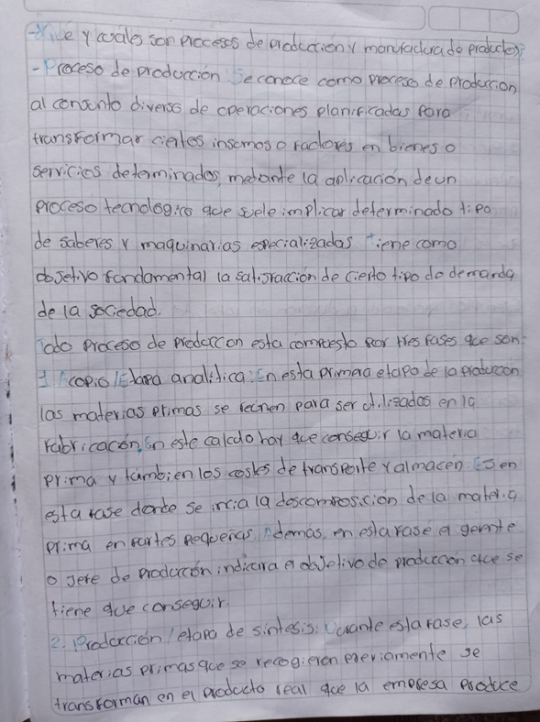 -Que y cuales son procesos de producción y manufactura de productos?
-Proceso de producción: Se conoce como proceso de producion
al conjunto diverso de operaciones planificadas para
transformar ciertos insumos o factores en bienes o
servicios determinados, mediante la aplicación de un
proceso tecnologico que suele implicar determinado tipo
de saberes y maquinarias especializadas tiene como
objetivo fundamental la satisfacción de cierto tipo de demanda
de la sociedad.
Todo proceso de produccon esta compuesto por tres fases que son:
1. Acopio/Etapa analitica: En esta primaa etapa de la produccion
las materias primas se reunen para ser utilizados en la
fabricación, En este calculo hay que conseguir la materia
prima y tambien los costes de transporte y almacen Es en
esta fase donde se inicia la descomposición de la materia
prima en partes pequeñas Ademas, en esta fase el gerente
o jefe de producción indicara el objetivo de produccion que se
tiene que conseguir.
2. Produccion/etapa de sintesis: Durante esta fase, las
materias primas que se recogieron previamente se
transforman en el producto real que la empresa produce